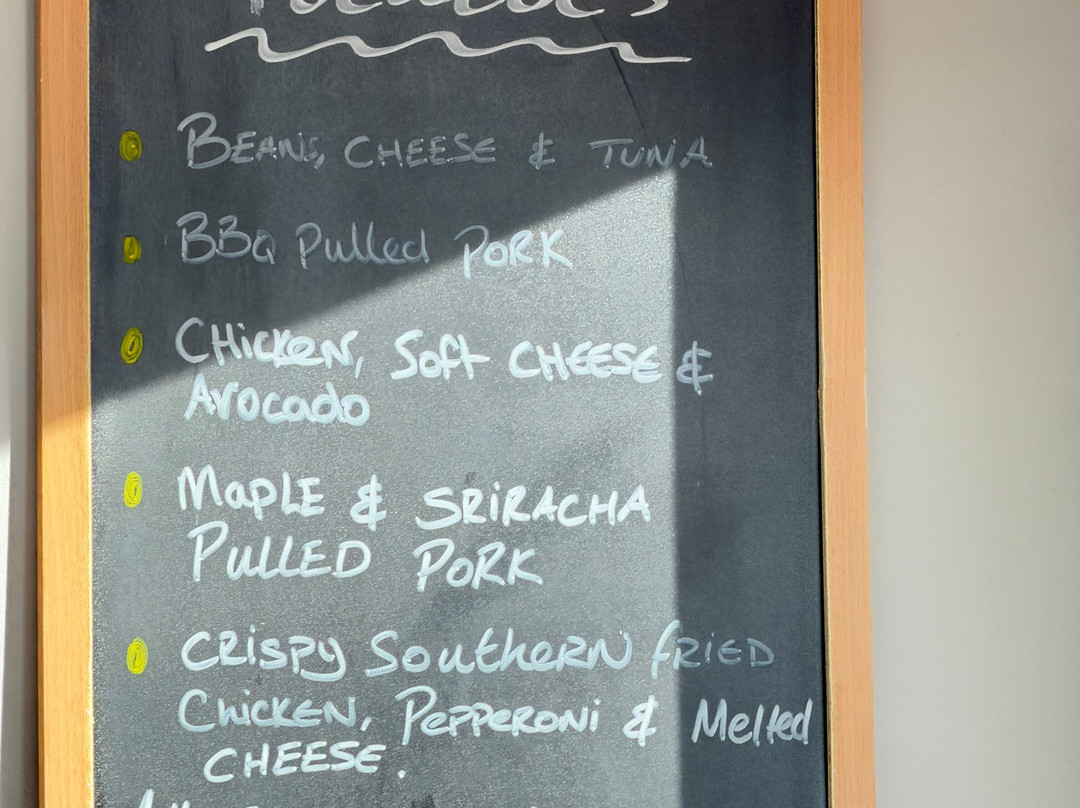 BEANS, CHEESE & TUNA
BBQ Pulled PORK
CHicKeN, Soft CHEESE &
Avocado
MaPLE & SRiRACHA
PULLED PORK
CRispy Southern fRIED
ChicKEN, PePPeRoNi & Melted
CHEESE.